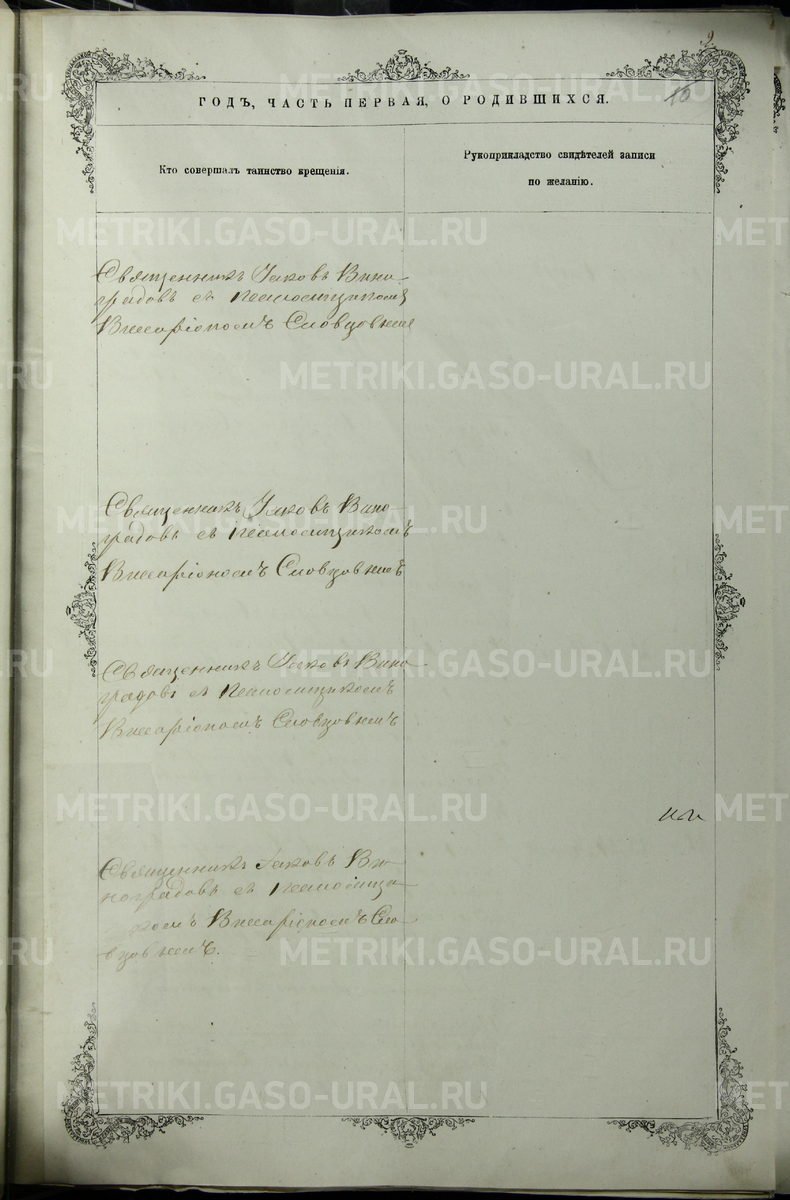 2
15
ГОДЪ, ЧАСТЬ ПЕРВАЯ, О РОДИВШИХСЯ.
Кто совершалъ таинство крещенія.
Рукоприкладство свидѣтелей записи
по желанію.
Священникъ Іаковъ Вино-
градовъ съ псаломщикомъ
Виссаріономъ Словцовымъ
Священникъ Іаковъ Вино-
градовъ съ псаломщикомъ
Виссаріономъ Словцовымъ
Священникъ Іаковъ Вино-
градовъ съ псаломщикомъ
Виссаріономъ Словцовымъ
Священникъ Іаковъ Ви-
ноградовъ съ псаломщи-
комъ Виссаріономъ Сло-
вцовымъ.
METRIKI.GASO-URAL.RU